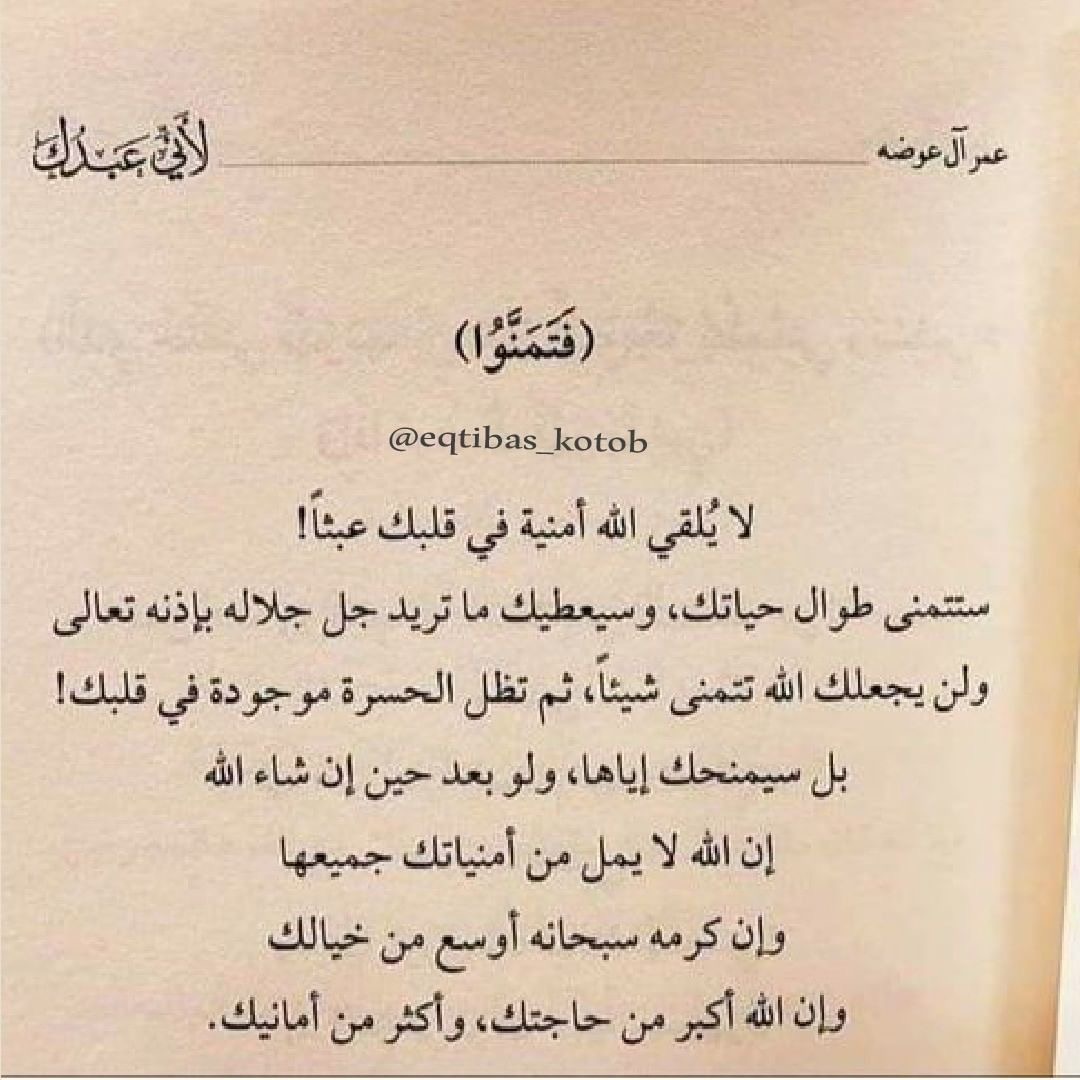 عمر آل عوضه
لأني عبدك
(فَتَمَنَّوُا)
@eqtibas_kotob
لا يُلقي الله أمنية في قلبك عبثاً!
ستتمنى طوال حياتك، وسيعطيك ما تريد جل جلاله بإذنه تعالى
ولن يجعلك الله تتمنى شيئاً، ثم تظل الحسرة موجودة في قلبك!
بل سيمنحك إياها، ولو بعد حين إن شاء الله
إن الله لا يمل من أمنياتك جميعها
وإن كرمه سبحانه أوسع من خيالك
وإن الله أكبر من حاجتك، وأكثر من أمانيك.